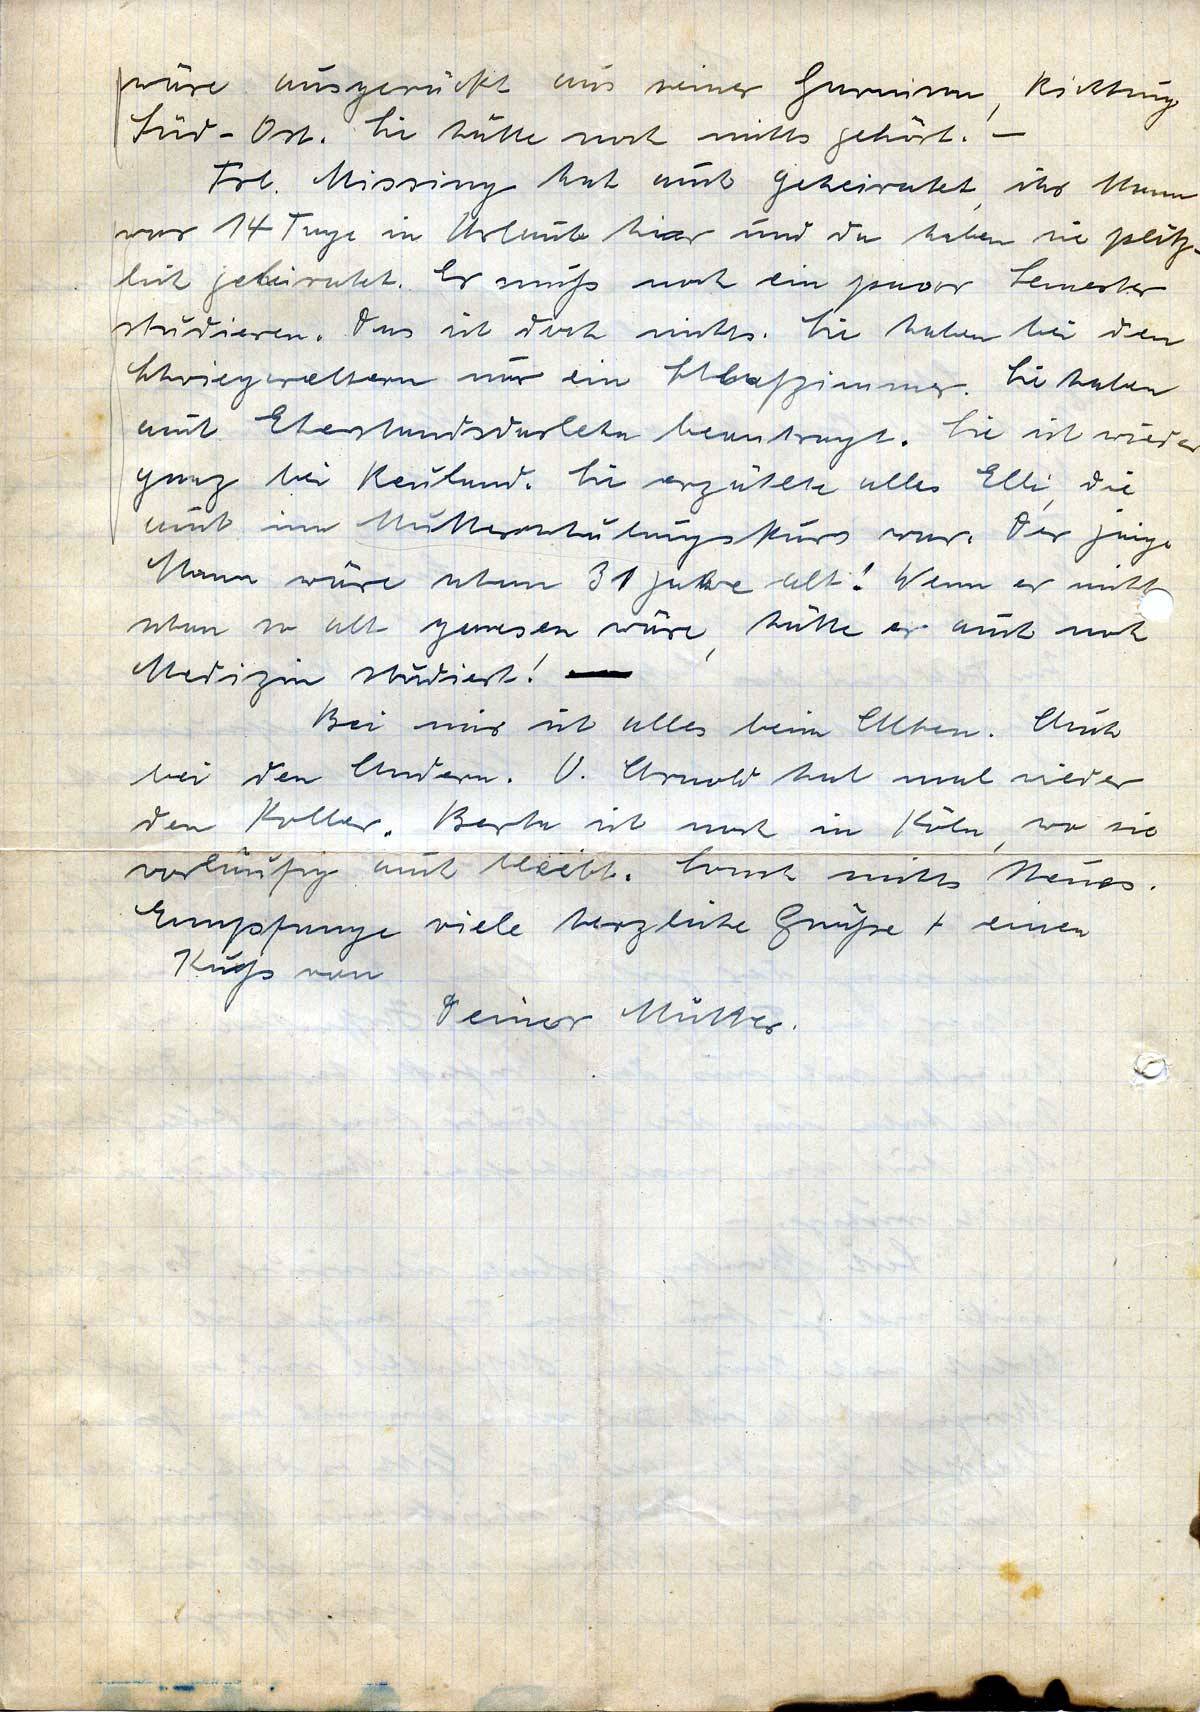 wäre ausgerückt aus seiner Garnison, Richtung
Süd-Ost. Sie hätte noch nichts gehört. —
Frl. Missing hat auch geheiratet, ihr Mann
war 14 Tage in Urlaub hier und da haben sie plötz-
lich geheiratet. Er muß noch ein paar Semester
studieren. Das ist doch nichts. Sie haben bei den
Schwiegereltern nur ein Schlafzimmer. Sie haben
auch Ehestandsdarlehn beantragt. Sie ist wieder
ganz bei Reuland. Sie erzählte alles Elli, die
auch im Mutterschulungskurs war. Der junge
Mann wäre schon 31 Jahre alt! Wenn er nicht
schon so alt gewesen wäre, hätte er auch noch
Medizin studiert! —
Bei mir ist alles beim Alten. Auch
bei den Andern. O. Arnold hat mal wieder
den Koller. Berta ist noch in Köln, wo sie
vorläufig auch bleibt. Sonst nichts Neues.
Empfange viele herzliche Grüße + einen
Kuß von
Deiner Mutter.